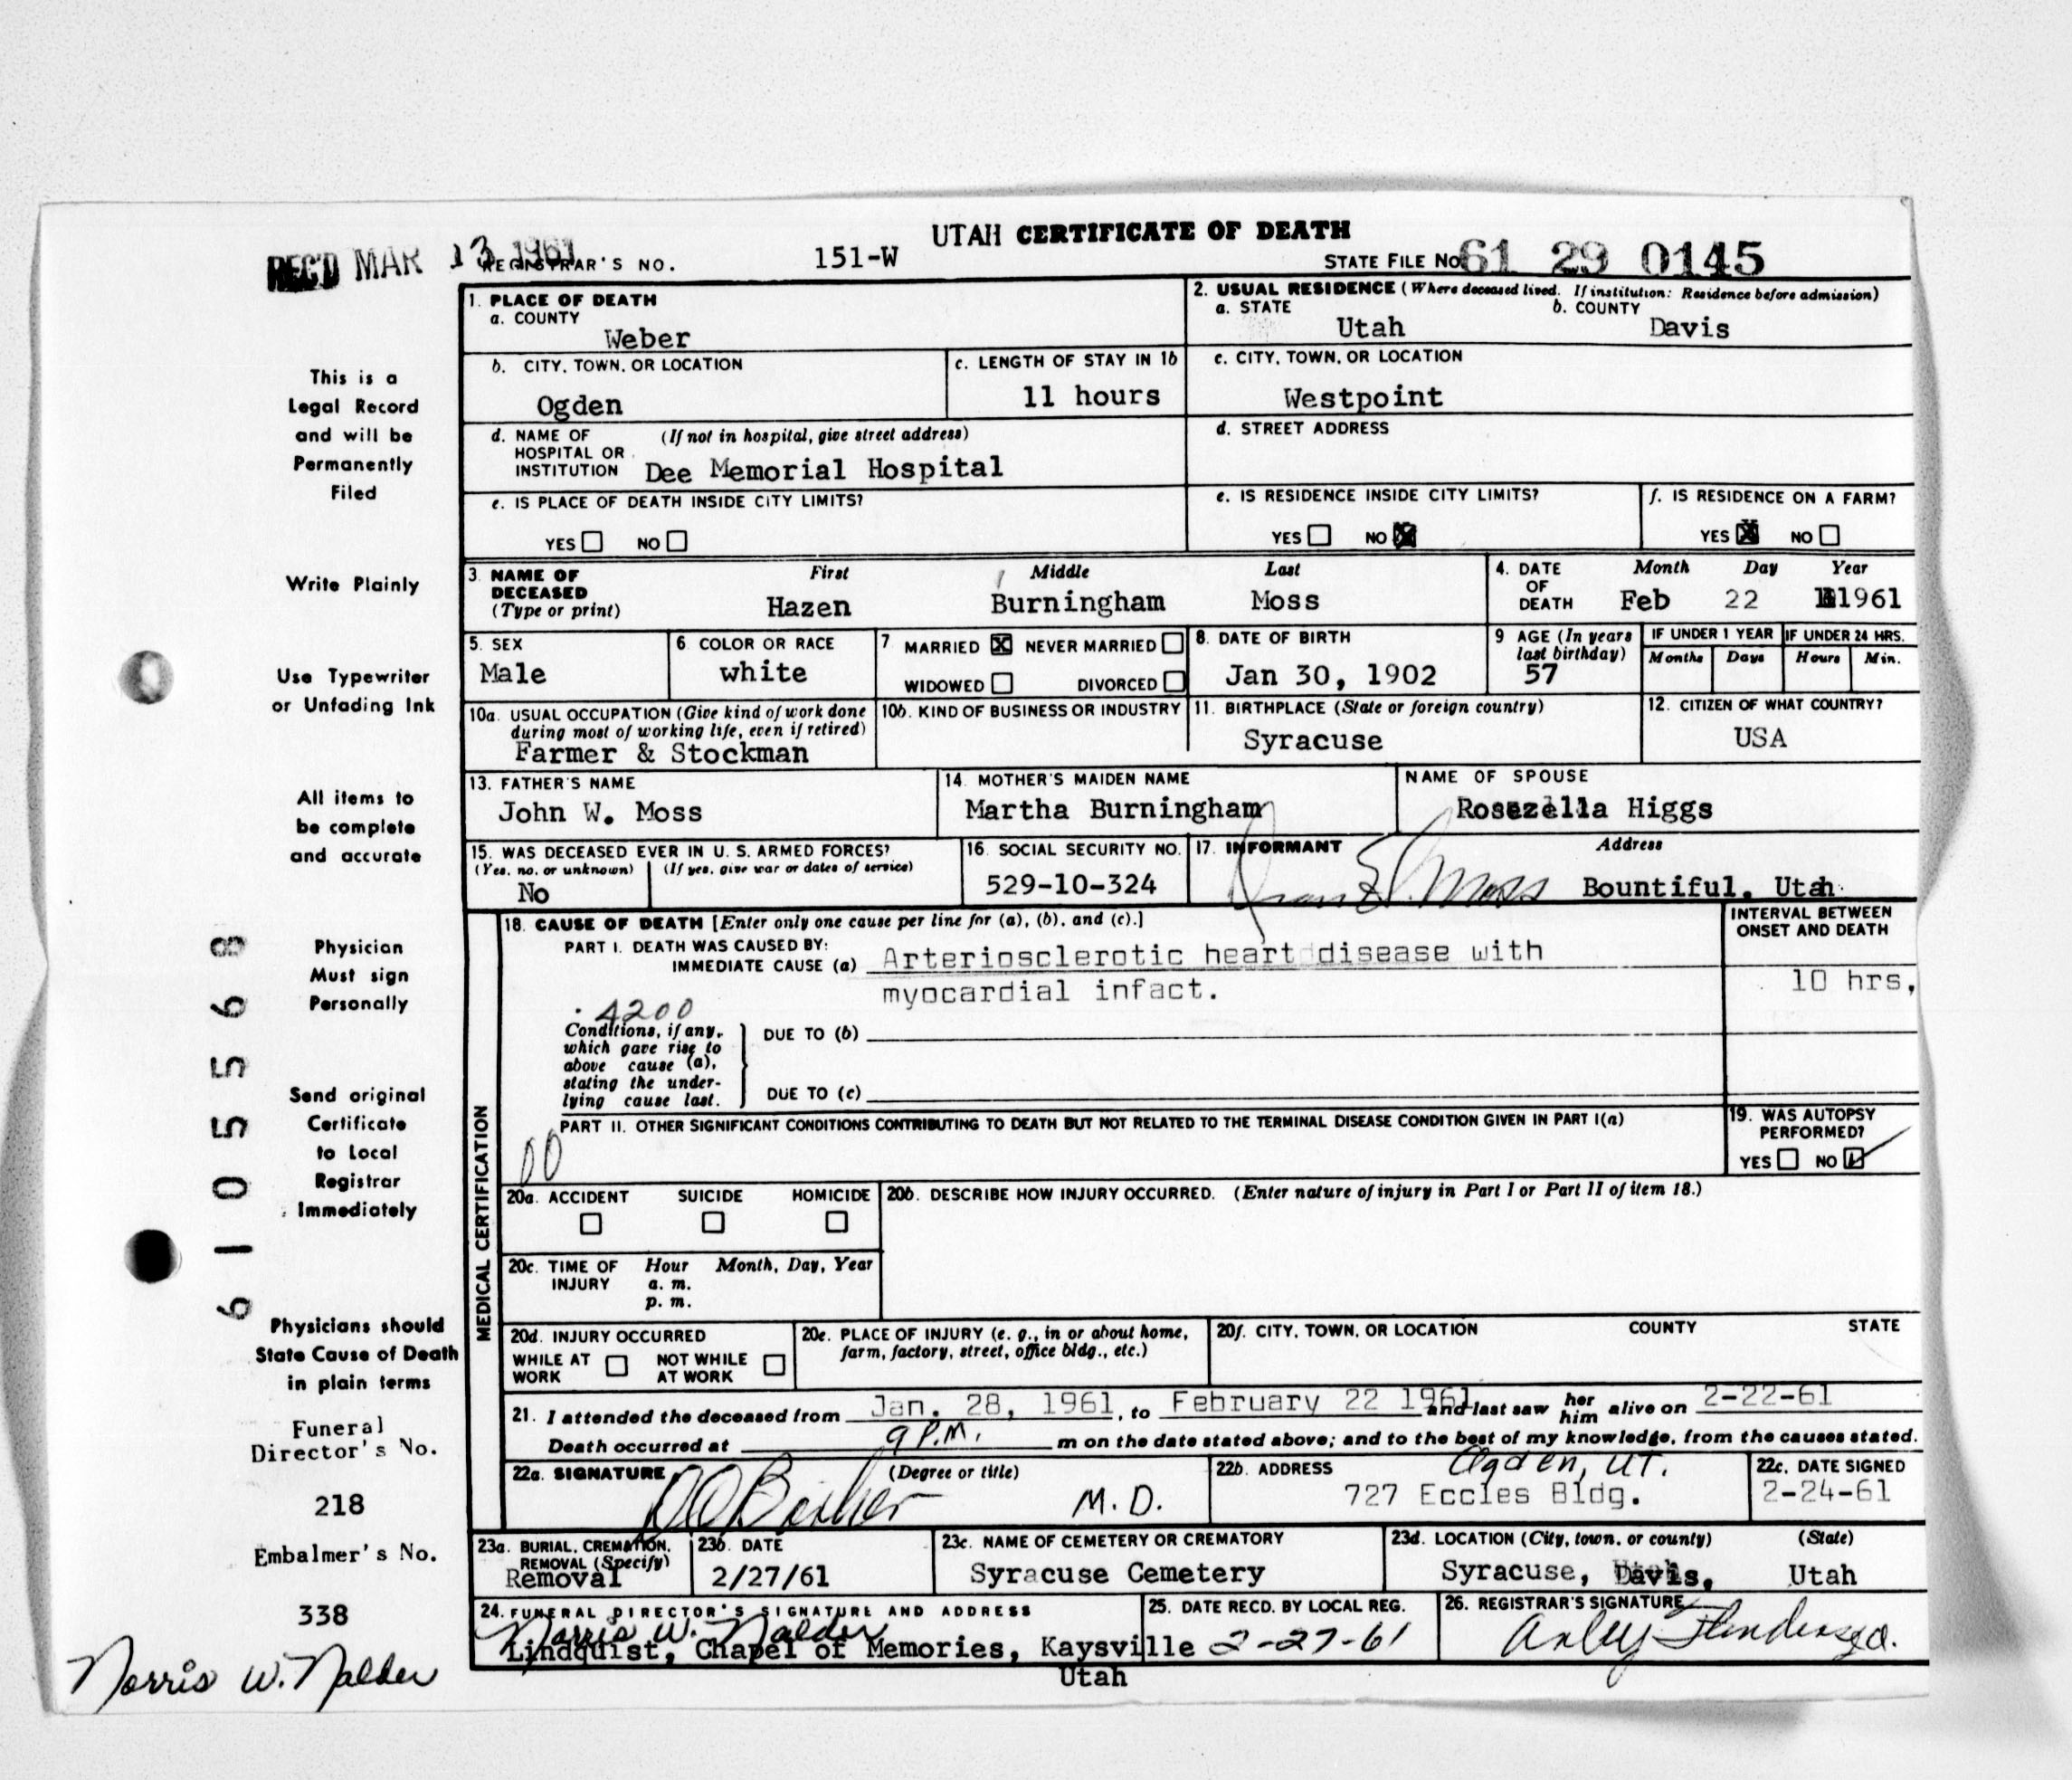 UTAH CERTIFICATE OF DEATH
REC'D MAR 13 1961 REGISTRAR'S NO. 151-W STATE FILE NO. 61 29 0145
This is a
Legal Record
and will be
Permanently
Filed
Write Plainly
Use Typewriter
or Unfading Ink
All items to
be complete
and accurate
Physician
Must sign
Personally
Send original
Certificate
to Local
Registrar
Immediately
Physicians should
State Cause of Death
in plain terms
Funeral
Director's No.
218
Embalmer's No.
338
Norris W. Nalder
61055568
1. PLACE OF DEATH
a. COUNTY
Weber
2. USUAL RESIDENCE (Where deceased lived. If institution: Residence before admission)
a. STATE b. COUNTY
Utah Davis
b. CITY, TOWN, OR LOCATION
Ogden
c. LENGTH OF STAY IN 1b
11 hours
c. CITY, TOWN, OR LOCATION
Westpoint
d. NAME OF (If not in hospital, give street address)
HOSPITAL OR
INSTITUTION Dee Memorial Hospital
d. STREET ADDRESS
e. IS PLACE OF DEATH INSIDE CITY LIMITS?
YES NO
e. IS RESIDENCE INSIDE CITY LIMITS?
YES NO X
f. IS RESIDENCE ON A FARM?
YES X NO
3. NAME OF First Middle Last
DECEASED
(Type or print) Hazen Burningham Moss
4. DATE Month Day Year
OF
DEATH Feb 22 1961
5. SEX
Male
6. COLOR OR RACE
white
7 MARRIED X NEVER MARRIED
WIDOWED DIVORCED
8. DATE OF BIRTH
Jan 30, 1902
9 AGE (In years
last birthday)
57
IF UNDER 1 YEAR IF UNDER 24 HRS.
Months Days Hours Min.
10a. USUAL OCCUPATION (Give kind of work done
during most of working life, even if retired)
Farmer & Stockman
10b. KIND OF BUSINESS OR INDUSTRY
11. BIRTHPLACE (State or foreign country)
Syracuse
12. CITIZEN OF WHAT COUNTRY?
USA
13. FATHER'S NAME
John W. Moss
14. MOTHER'S MAIDEN NAME
Martha Burningham
NAME OF SPOUSE
Rosezella Higgs
15. WAS DECEASED EVER IN U. S. ARMED FORCES?
(Yes, no, or unknown) (If yes, give war or dates of service)
No
16. SOCIAL SECURITY NO.
529-10-324
17. INFORMANT Address
Moss Bountiful, Utah
MEDICAL CERTIFICATION
18. CAUSE OF DEATH [Enter only one cause per line for (a), (b), and (c).]
PART I. DEATH WAS CAUSED BY:
IMMEDIATE CAUSE (a) Arteriosclerotic heart disease with
myocardial infact.
INTERVAL BETWEEN
ONSET AND DEATH
10 hrs,
4200
Conditions, if any,
which gave rise to
above cause (a),
stating the under-
lying cause last.
DUE TO (b)
DUE TO (c)
PART II. OTHER SIGNIFICANT CONDITIONS CONTRIBUTING TO DEATH BUT NOT RELATED TO THE TERMINAL DISEASE CONDITION GIVEN IN PART I(a)
00
19. WAS AUTOPSY
PERFORMED?
YES NO
20a. ACCIDENT SUICIDE HOMICIDE
20b. DESCRIBE HOW INJURY OCCURRED. (Enter nature of injury in Part I or Part II of item 18.)
20c. TIME OF Hour Month, Day, Year
INJURY a. m.
p. m.
20d. INJURY OCCURRED
WHILE AT NOT WHILE
WORK AT WORK
20e. PLACE OF INJURY (e. g., in or about home,
farm, factory, street, office bldg., etc.)
20f. CITY, TOWN, OR LOCATION COUNTY STATE
21. I attended the deceased from Jan. 28, 1961, to February 22 1961 and last saw her him alive on 2-22-61
Death occurred at 9 P.M. m on the date stated above; and to the best of my knowledge, from the causes stated.
22a. SIGNATURE (Degree or title)
M.D.
22b. ADDRESS Ogden, UT.
727 Eccles Bldg.
22c. DATE SIGNED
2-24-61
23a. BURIAL, CREMATION,
REMOVAL (Specify)
Removal
23b. DATE
2/27/61
23c. NAME OF CEMETERY OR CREMATORY
Syracuse Cemetery
23d. LOCATION (City, town, or county) (State)
Syracuse, Davis, Utah
24. FUNERAL DIRECTOR'S SIGNATURE AND ADDRESS
Norris W. Nalder
Lindquist, Chapel of Memories, Kaysville
Utah
25. DATE RECD. BY LOCAL REG.
2-27-61
26. REGISTRAR'S SIGNATURE